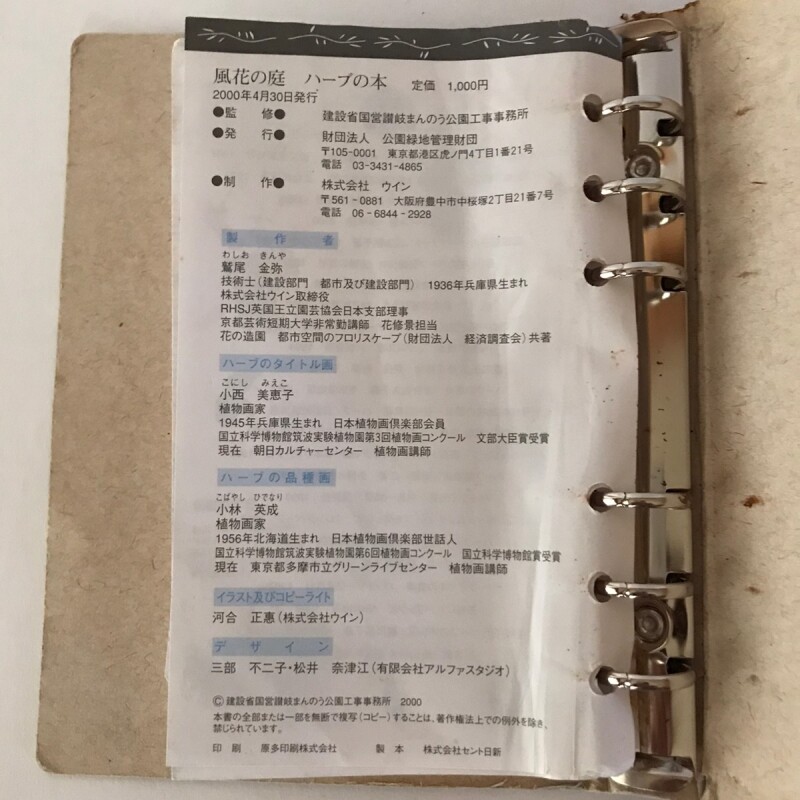 風花の庭　ハーブの本　定価　1,000円
2000年4月30日発行
●監　修●　建設省国営讃岐まんのう公園工事事務所
●発　行●　財団法人　公園緑地管理財団
〒105-0001　東京都港区虎ノ門4丁目1番21号
電話　03-3431-4865
●制　作●　株式会社　ウイン
〒561-0881　大阪府豊中市中桜塚2丁目21番7号
電話　06-6844-2928
製　作　者
わしお　きんや
鷲尾　金弥
技術士(建設部門　都市及び建設部門)　1936年兵庫県生まれ
株式会社ウイン取締役
RHSJ英国王立園芸協会日本支部理事
京都芸術短期大学非常勤講師　花修景担当
花の造園　都市空間のフロリスケープ(財団法人　経済調査会)共著
ハーブのタイトル画
こにし　みえこ
小西　美恵子
植物画家
1945年兵庫県生まれ　日本植物画倶楽部会員
国立科学博物館筑波実験植物園第3回植物画コンクール　文部大臣賞受賞
現在　朝日カルチャーセンター　植物画講師
ハーブの品種画
こばやし　ひでなり
小林　英成
植物画家
1956年北海道生まれ　日本植物画倶楽部世話人
国立科学博物館筑波実験植物園第6回植物画コンクール　国立科学博物館賞受賞
現在　東京都多摩市立グリーンライブセンター　植物画講師
イラスト及びコピーライト
河合　正惠(株式会社ウイン)
デザイン
三部　不二子・松井　奈津江(有限会社アルファスタジオ)
©建設省国営讃岐まんのう公園工事事務所　2000
本書の全部または一部を無断で複写(コピー)することは、著作権法上での例外を除き、
禁じられています。
印　刷　原多印刷株式会社　製　本　株式会社セント日新